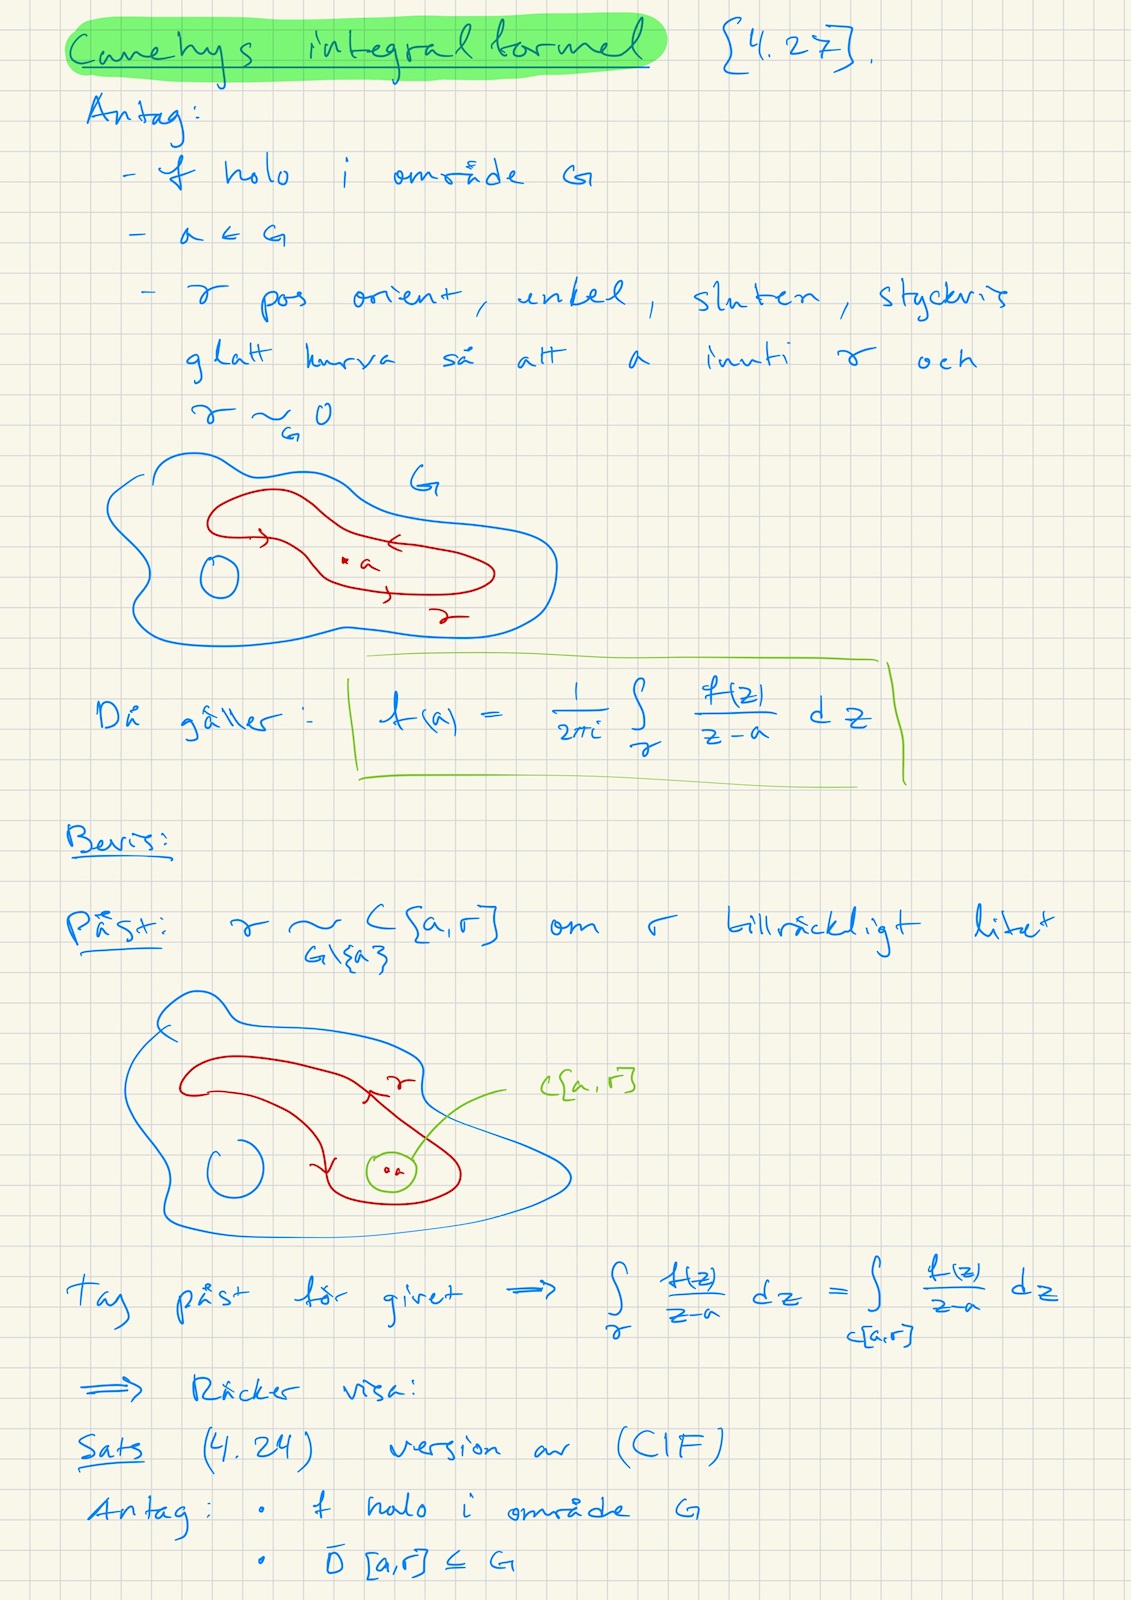 Cauchys integralformel [4.27].
Antag:
- f holo i område G
- a ∈ G
- γ pos orient, enkel, sluten, styckvis
glatt kurva så att a inuti γ och
γ ~_G 0
G
a
γ
Då gäller: f(a) = 1/(2πi) ∫_γ f(z)/(z-a) dz
Bevis:
Påst: γ ~_{G\{a}} C[a,r] om r tillräckligt litet
γ
C[a,r]
a
Tag påst för givet ⟹ ∫_γ f(z)/(z-a) dz = ∫_{C[a,r]} f(z)/(z-a) dz
⟹ Räcker visa:
Sats (4.24) version av (CIF)
Antag: • f holo i område G
• D̄[a,r] ⊆ G